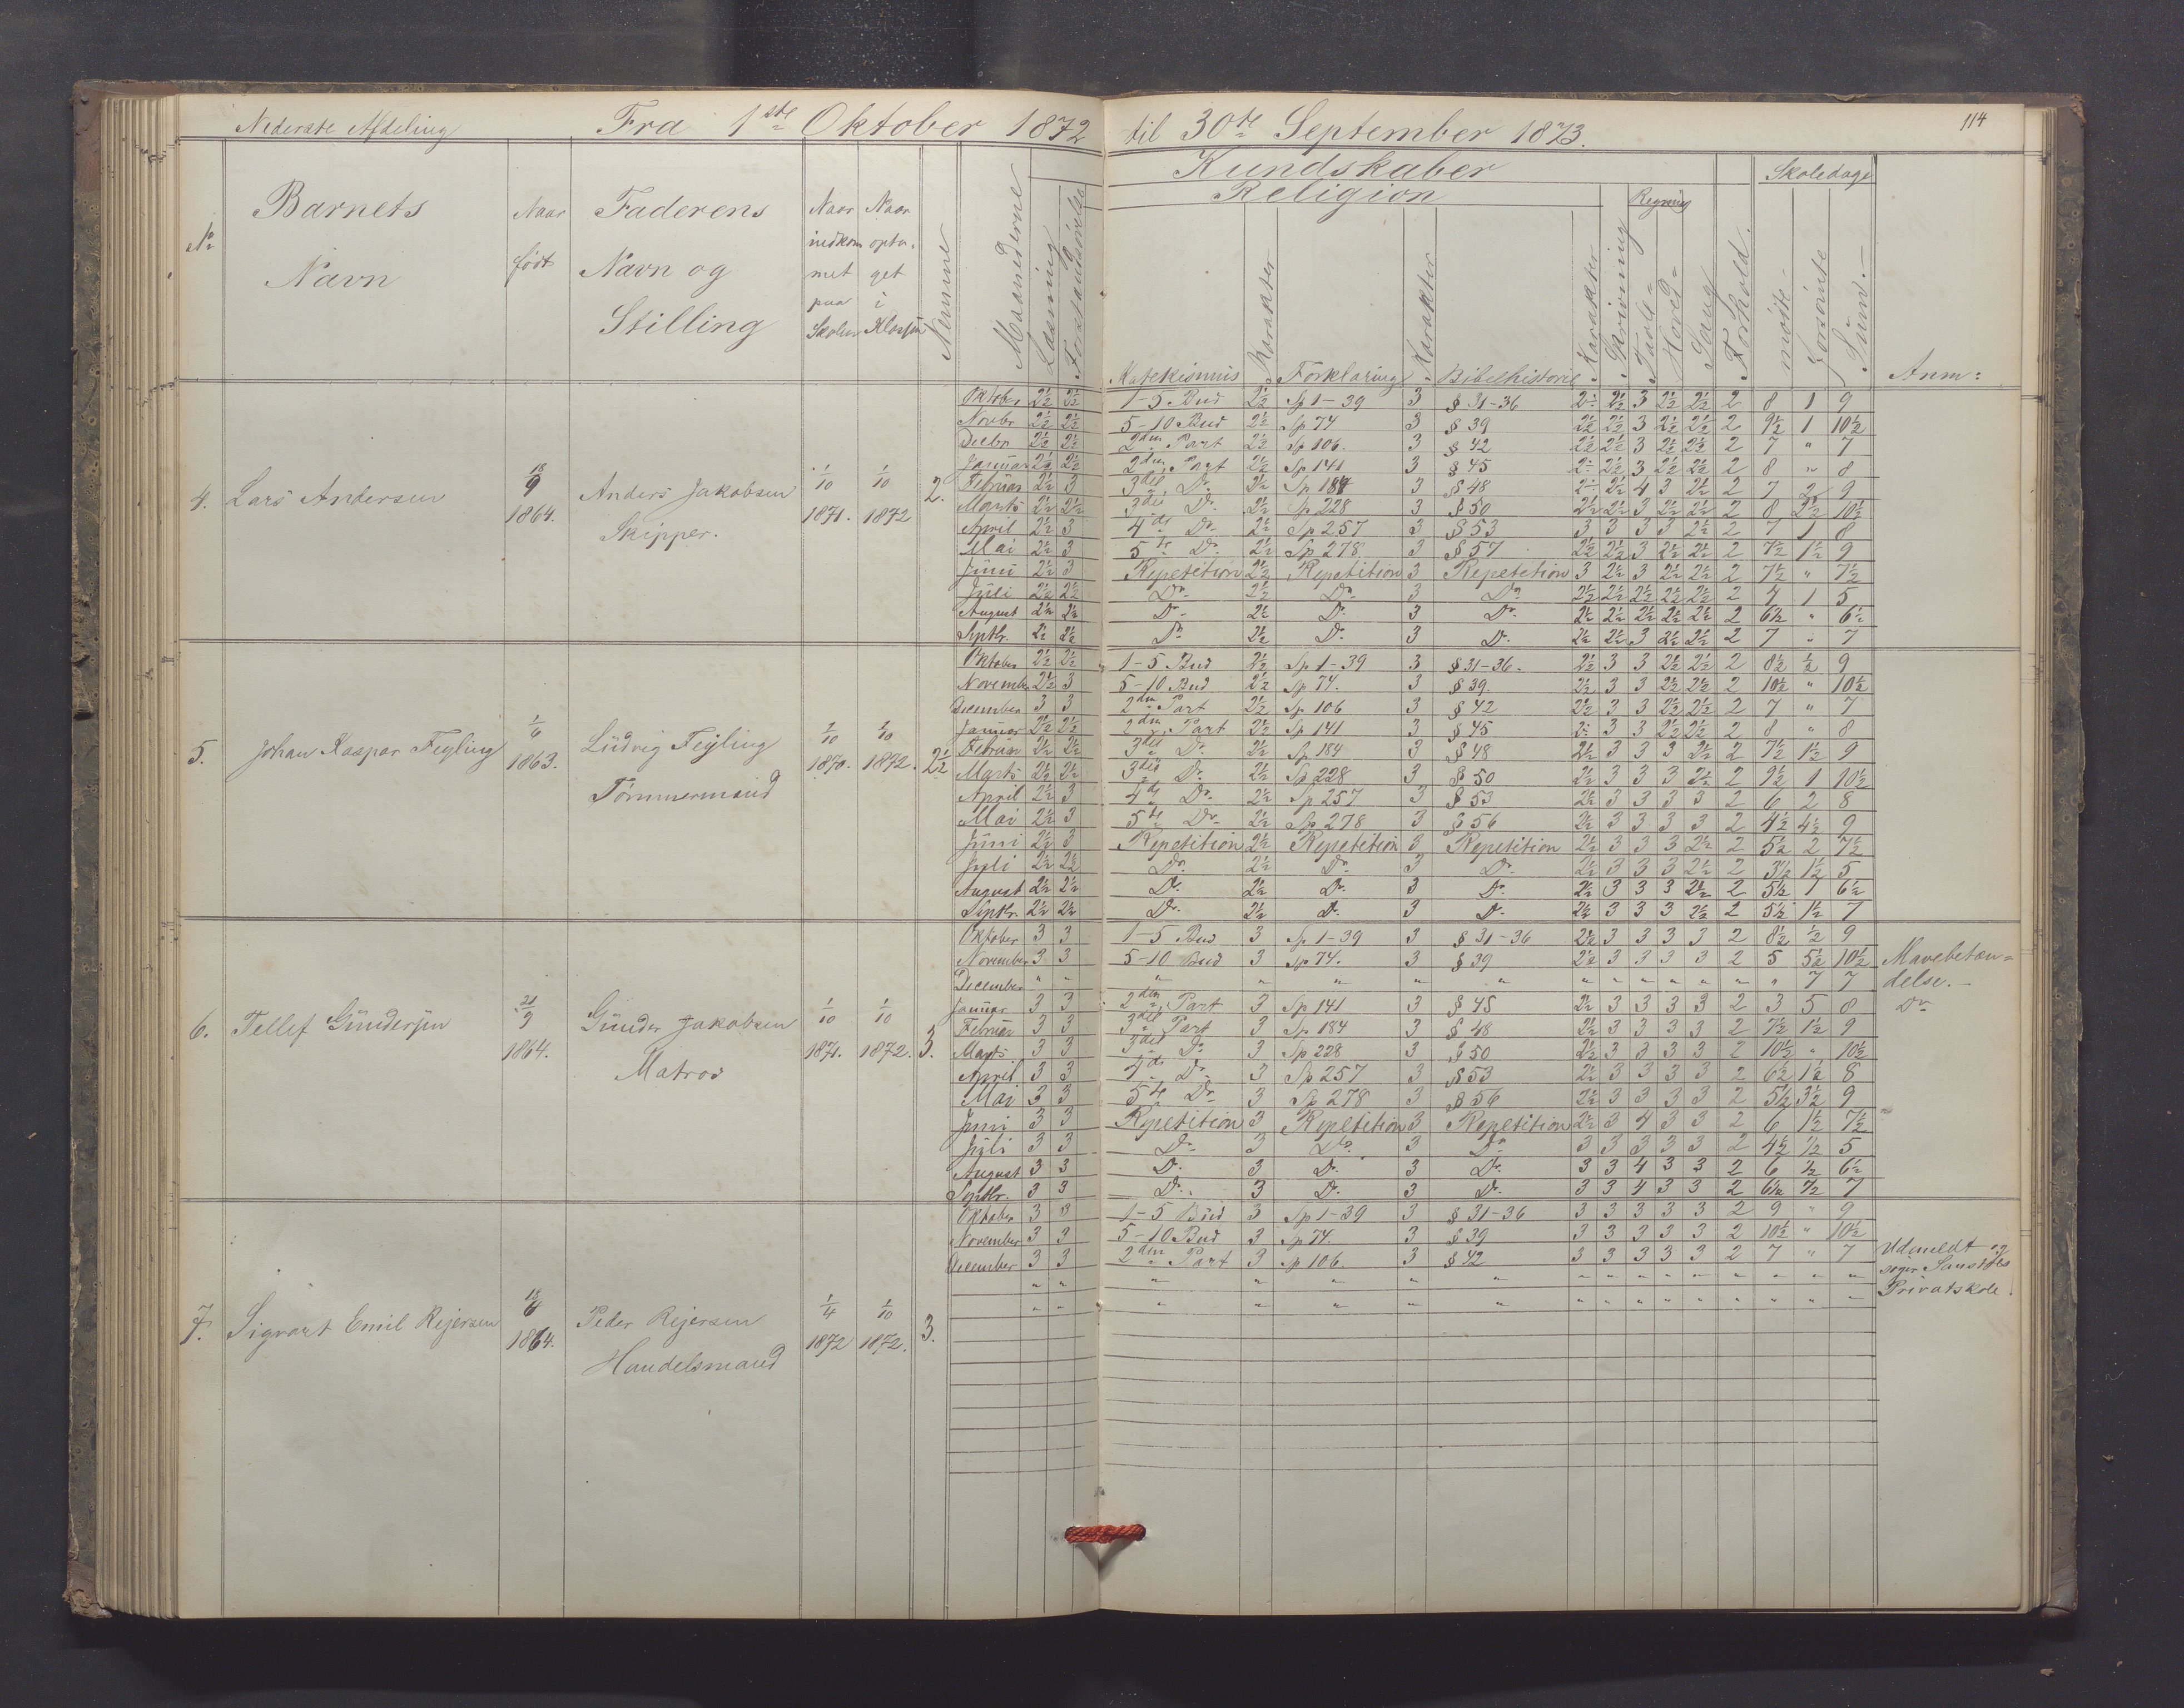 Nederste Afdeling Fra 1ste Oktober 1872 til 30te September 1873. 114
Kundskaber Skoledage
Religion Regning
No Barnets Navn Naar født Faderens Navn og Stilling Naar indkommet paa Skolen Naar optaget i Klassen Nemme Maanederne Læsning Forstandsøvelse Katekismus Karakter Forklaring Karakter Bibelhistorie Karakter Skrivning Tavle- Hoved- Sang Forhold mødte forsømte Sum Anm:
4. Lars Andersen 18/9 1864. Anders Jakobsen Skipper. 1/10 1871. 1/10 1872 2.
Oktober 2½ 2½ 1-5 Bud 2½ Sp 1-39 3 § 31-36 2½ 2½ 3 2½ 2½ 2 8 1 9
Novbr 2½ 2½ 5-10 Bud 2½ Sp 74 3 § 39 2½ 2½ 3 2½ 2½ 2 9½ 1 10½
Decbr 2½ 2½ 2den Part 2½ Sp 106. 3 § 42 2½ 2½ 3 2½ 2½ 2 7 " 7
Januar 2½ 2½ 2den Part 2½ Sp 141 3 § 45 2½ 2½ 3 2½ 2½ 2 8 " 8
Februar 2½ 3 3die Do 2½ Sp 184 3 § 48 2½ 2½ 4 3 2½ 2 7 2 9
Marts 2½ 2½ 3die Do 2½ Sp 228 3 § 50 2½ 2½ 3 2½ 2½ 2 8 2½ 10½
April 2½ 3 4de Do 2½ Sp 257 3 § 53 3 3 3 3 2½ 2 7 1 8
Mai 2½ 3 5te Do 2½ Sp 278 3 § 57 2½ 2½ 3 2½ 2½ 2 7½ 1½ 9
Juni 2½ 3 Repetition 2½ Repetition 3 Repetetion 3 2½ 3 2½ 2½ 2 7½ " 7½
Juli 2½ 2½ Do 2½ Do 3 Do 2½ 2½ 2½ 2½ 2½ 2 4 1 5
August 2½ 2½ Do 2½ Do 3 Do 2½ 2½ 2½ 2½ 2½ 2 6½ " 6½
Septbr. 2½ 2½ Do 2½ Do 3 Do 2½ 2½ 3 2½ 2½ 2 7 " 7
5. Johan Kaspar Feyling 1/6 1863. Ludvig Feyling Tømmermand 1/10 1870. 1/10 1872. 2½
Oktober 2½ 2½ 1-5 Bud 2½ Sp 1-39 3 § 31-36. 2½ 3 3 2½ 2½ 2 8½ ½ 9
November 2½ 3 5-10 Bud 2½ Sp 74. 3 § 39. 2½ 3 3 2½ 2½ 2 10½ " 10½
December 3 3 2den Part 2½ Sp 106 3 § 42 2½ 3 3 2½ 2½ 2 7 " 7
Januar 2½ 2½ 2den Part 2½ Sp 141 3 § 45 2½ 3 3 2½ 2½ 2 8 " 8
Februar 2½ 2½ 3die Do 2½ Sp 184 3 § 48 2½ 3 3 3 2½ 2 7½ 1½ 9
Marts 2½ 2½ 3die Do 2½ Sp 228 3 § 50 2½ 3 3 3 2½ 2 9½ 1 10½
April 2½ 3 4de Do 2½ Sp 257 3 § 53 2½ 3 3 3 3 2 6 2 8
Mai 2½ 3 5te Do 2½ Sp 278 3 § 56 2½ 3 3 3 3 2 4½ 4½ 9
Juni 2½ 3 Repetition 2½ Repetition 3 Repetition 2½ 3 3 3 2½ 2 5½ 2 7½
Juli 2½ 2½ Do 2½ Do 3 Do 2½ 3 3 3 2½ 2 3½ 1½ 5
August 2½ 2½ Do 2½ Do 3 Do 2½ 3 3 3 2½ 2 5½ 1 6½
Septbr. 2½ 2½ Do 2½ Do 3 Do 2½ 3 3 3 2½ 2 5½ 1½ 7
6. Tellef Gundersen 21/9 1864. Gunder Jakobsen Matros 1/10 1871. 1/10 1872. 3.
Oktober 3 3 1-5 Bud 3 Sp 1-39 3 § 31-36 2½ 3 3 3 3 2 8½ ½ 9
November 3 3 5-10 Bud 3 Sp 74. 3 § 39 2½ 3 3 3 3 2 5 5½ 10½ Mavebetæn=
December " " " " " " " " " " " " " " 7 7 delse.
Januar 3 3 2den Part 3 Sp 141 3 § 45 2½ 3 3 3 3 2 3 5 8 Do
Februar 3 3 3die Part 3 Sp 184 3 § 48 2½ 3 3 3 3 2 7½ 1½ 9
Marts 3 3 3die Do 3 Sp 228 3 § 50 2½ 3 3 3 3 2 10½ " 10½
April 3 3 4de Do 3 Sp 257 3 § 53 2½ 3 3 3 3 2 6½ 1½ 8
Mai 3 3 5te Do 3 Sp 278 3 § 56 2½ 3 3 3 3 2 5½ 3½ 9
Juni 3 3 Repetition 3 Repetition 3 Repetition 2½ 3 4 3 3 2 6 1½ 7½
Juli 3 3 Do 3 Do 3 Do 3 3 3 3 3 2 4½ ½ 5
August 3 3 Do 3 Do 3 Do 3 3 4 3 3 2 6 ½ 6½
Septbr. 3 3 Do 3 Do 3 Do 3 3 4 3 3 2 6½ ½ 7
7. Sigvart Emil Rejersen 18/6 1864. Peder Rejersen Handelsmand 1/4 1872 1/10 1872. 3.
Oktober 3 3 1-5 Bud 3 Sp 1-39 3 § 31-36 3 3 3 3 3 2 9 " 9
November 3 3 5-10 Bud 3 Sp 74. 3 § 39 3 3 3 3 3 2 10½ " 10½
December 3 3 2den Part 3 Sp 106. 3 § 42 3 3 3 3 3 2 7 " 7 Udmeldt og
" " " " " " " " " " " " " " " " " søger
" " " " " " " " " " " " " " " " " Privatskole.